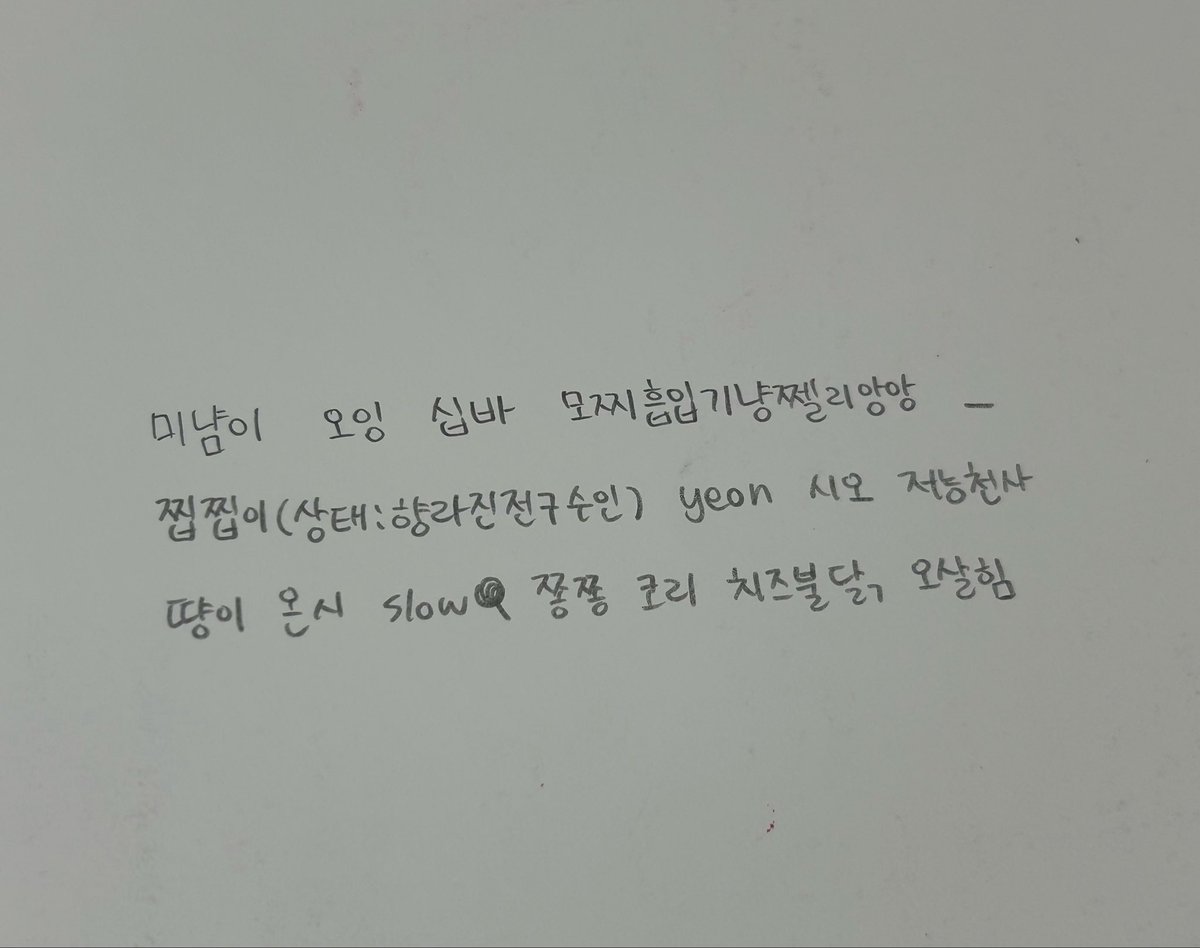 미냠이 오잉 십바 모찌흡입기냥쩰리앙앙 _
찝찝이(상태:향라진전구수인) yeon 시오 저능천사
땽이 온시 slow 쫑쫑 코리 치즈불닭, 오살힘